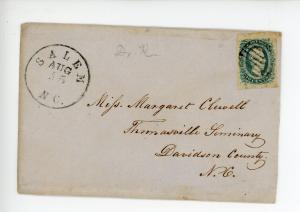 SALEM
AUG
N.C.
Miss. Margaret Clewell
Thomasville Seminary
Davidson County
N.C.